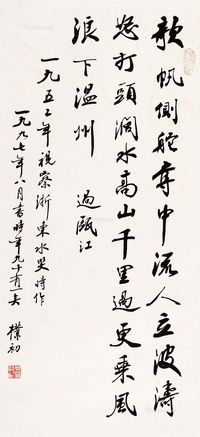 欹帆侧舵夺中流人立波涛
怒打头润水高山千里过更乘风
浪下温州　过瓯江
一九五二年视察浙东水灾时作
一九九七年八月书时年九十有一
朴初